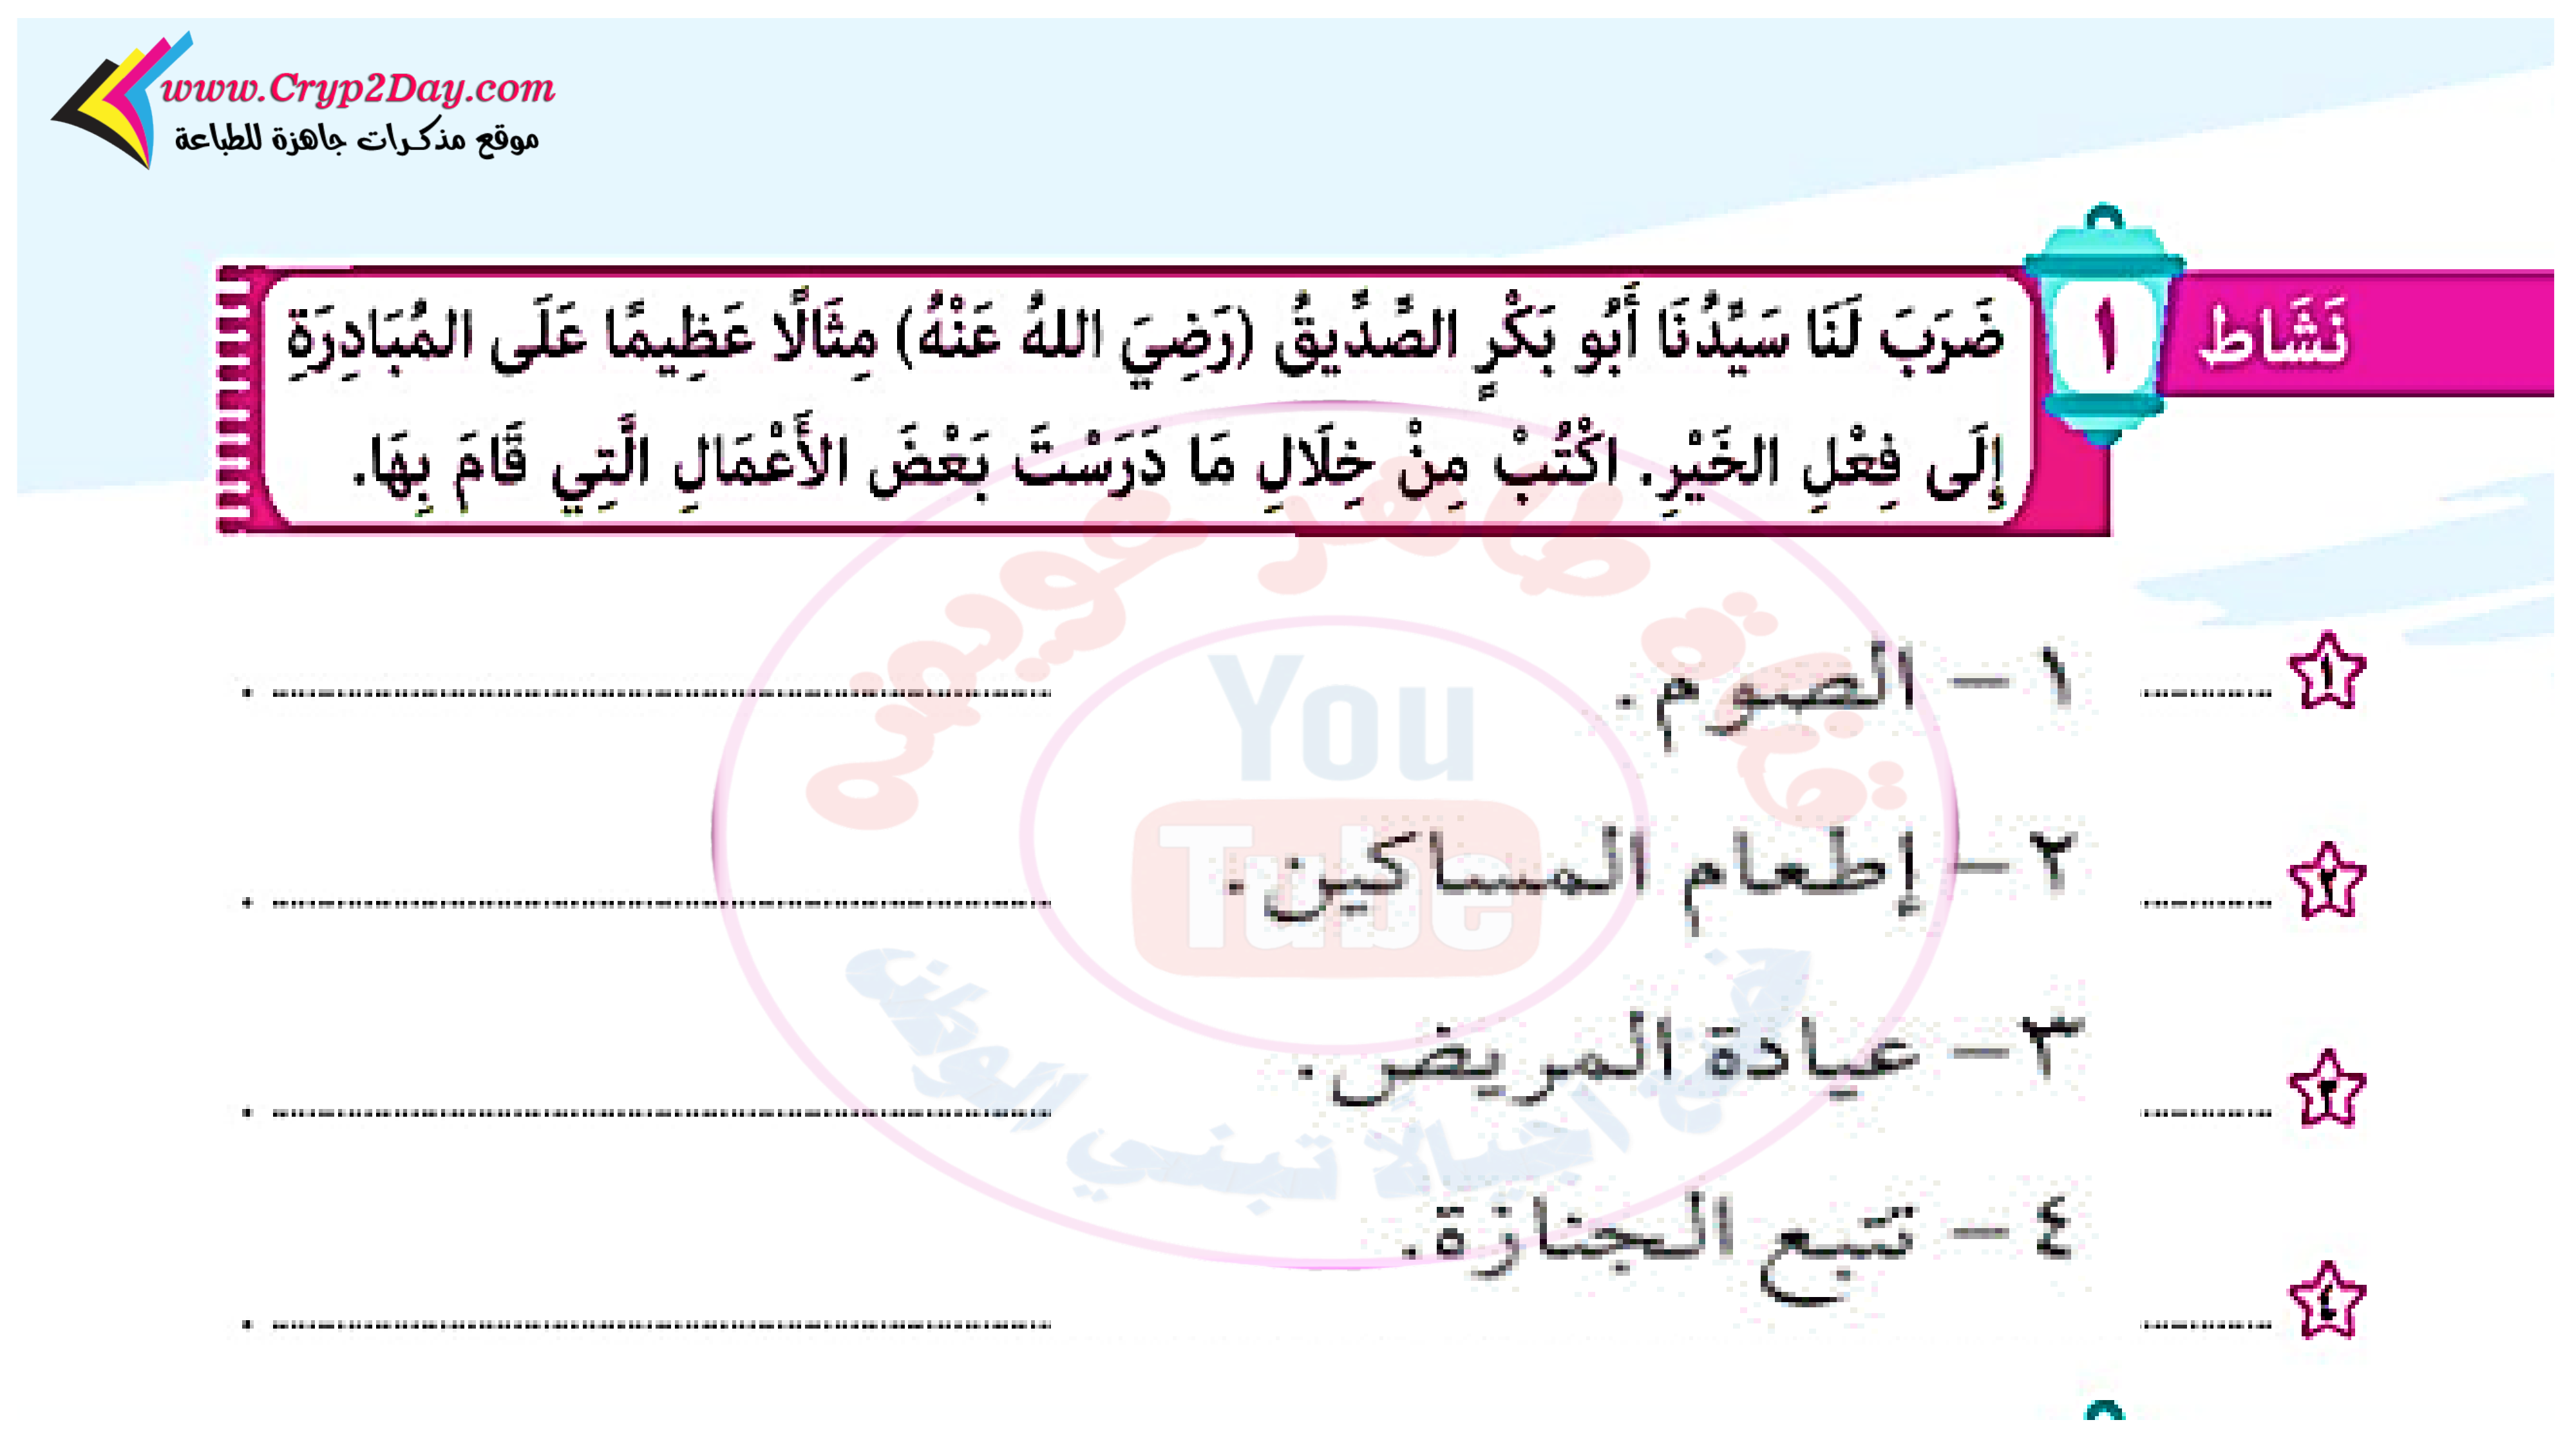 www.Cryp2Day.com
موقع مذكرات جاهزة للطباعة
نَشَاط ١
ضَرَبَ لَنَا سَيِّدُنَا أَبُو بَكْرٍ الصِّدِّيقُ (رَضِيَ اللهُ عَنْهُ) مِثَالًا عَظِيمًا عَلَى المُبَادِرَةِ
إِلَى فِعْلِ الخَيْرِ. اكْتُبْ مِنْ خِلَالِ مَا دَرَسْتَ بَعْضَ الأَعْمَالِ الَّتِي قَامَ بِهَا.
قناة طاهر عويضه
١ ١- الصوم.
You
٢ ٢- إطعام المساكين.
Tube
٣ ٣- عيادة المريض.
اجيالاً تبني الوطن
٤ ٤- تتبع الجنازة.